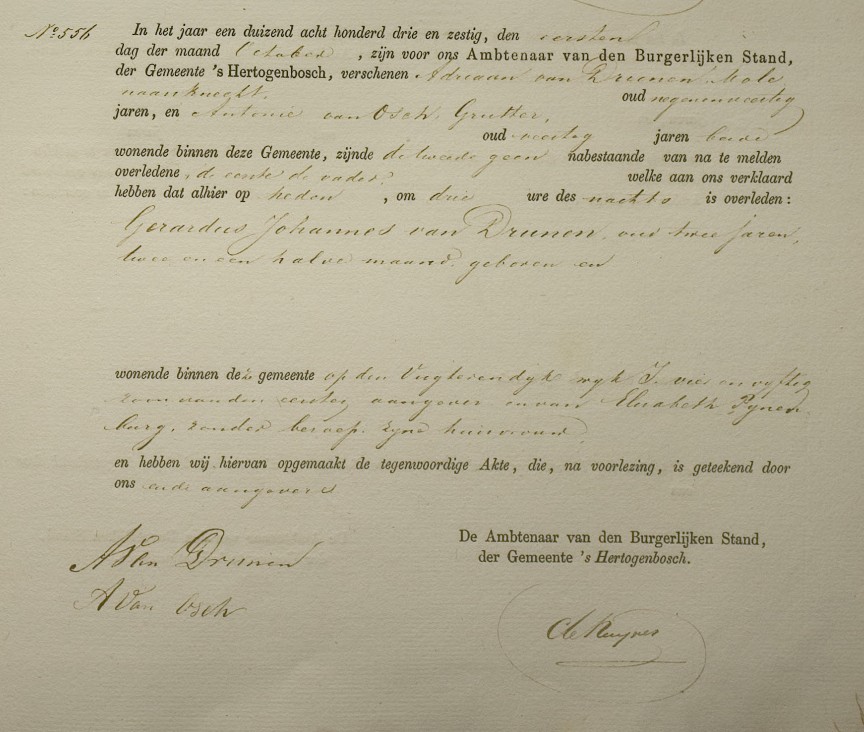 No. 556
In het jaar een duizend acht honderd drie en zestig, den eersten
dag der maand October, zijn voor ons Ambtenaar van den Burgerlijken Stand,
der Gemeente 's Hertogenbosch, verschenen Adriaan van Drunen, Mole
naarsknecht, oud negenenveertig
jaren, en Antonie van Osch, Grutter,
oud veertig jaren beide
wonende binnen deze Gemeente, zijnde de tweede geen nabestaande van na te melden
overledene, de eerste de vader, welke aan ons verklaard
hebben dat alhier op heden, om drie ure des nachts is overleden:
Gerardus Johannes van Drunen, oud twee jaren,
twee en een halve maand, geboren en
wonende binnen deze gemeente op den Vugterendyk wyk I. vier en vyftig
zoon van den eersten aangever en van Elisabeth Pynen
burg, zonder beroep, zyne huisvrouw,
en hebben wij hiervan opgemaakt de tegenwoordige Akte, die, na voorlezing, is geteekend door
ons en de aangevers
De Ambtenaar van den Burgerlijken Stand,
der Gemeente 's Hertogenbosch.
A Van Drunen
A Van Osch